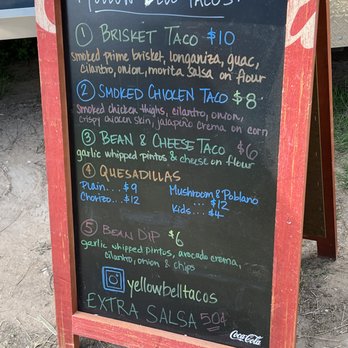 YELLOW BELL TACOS!
① BRISKET TACO $10
smoked prime brisket, longaniza, guac,
cilantro, onion, morita salsa on flour
② SMOKED CHICKEN TACO $8
Smoked chicken thighs, cilantro, onion,
crispy chicken skin, jalapeño crema on corn
③ BEAN & CHEESE TACO $6
garlic whipped pintos & cheese on flour
④ QUESADILLAS
Plain... $9
Chorizo... $12
Mushroom & Poblano
... $12
Kids... $4
⑤ BEAN DIP $6
garlic whipped pintos, avocado crema,
cilantro, onion & chips
yellowbelltacos
EXTRA SALSA 50¢
Coca-Cola